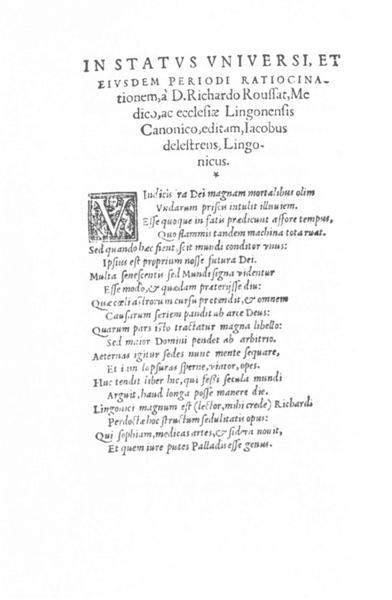 IN STATVS VNIVERSI, ET
EIVSDEM PERIODI RATIOCINA-
tionem, à D. Richardo Roussat, Me
dico, ac ecclesiæ Lingonensis
Canonico, editam, Iacobus
delestrens, Lingo-
nicus.
*
VIndicis ira Dei magnam mortalibus olim
Vndarum priscis intulit illuuiem.
Esse quoque in fatis prædicunt affore tempus,
Quo flammis tandem machina tota ruat.
Sed quando hæc fient, scit mundi conditor vnus:
Ipsius est proprium nosse futura Dei.
Multa senescentis sed Mundi signa videntur
Esse modo, & quædam præterisse diu:
Quæ cœli astrorum cursu pretendit, & omnem
Causarum seriem pandit ab arce Deus:
Quarum pars isto tractatur magna libello:
Sed maior Domini pendet ab arbitrio.
Aeternas igitur sedes nunc mente sequare,
Et iam lapsuras sperne, viator, opes.
Huc tendit liber hic, qui fessi secula mundi
Arguit, haud longa posse manere die.
Lingonici magnum est (lector, mihi crede) Richardi
Perdoctæ hoc structum sedulitatis opus:
Qui sophiam, medicas artes, & sidera nouit,
Et quem iure putes Palladis esse genus.